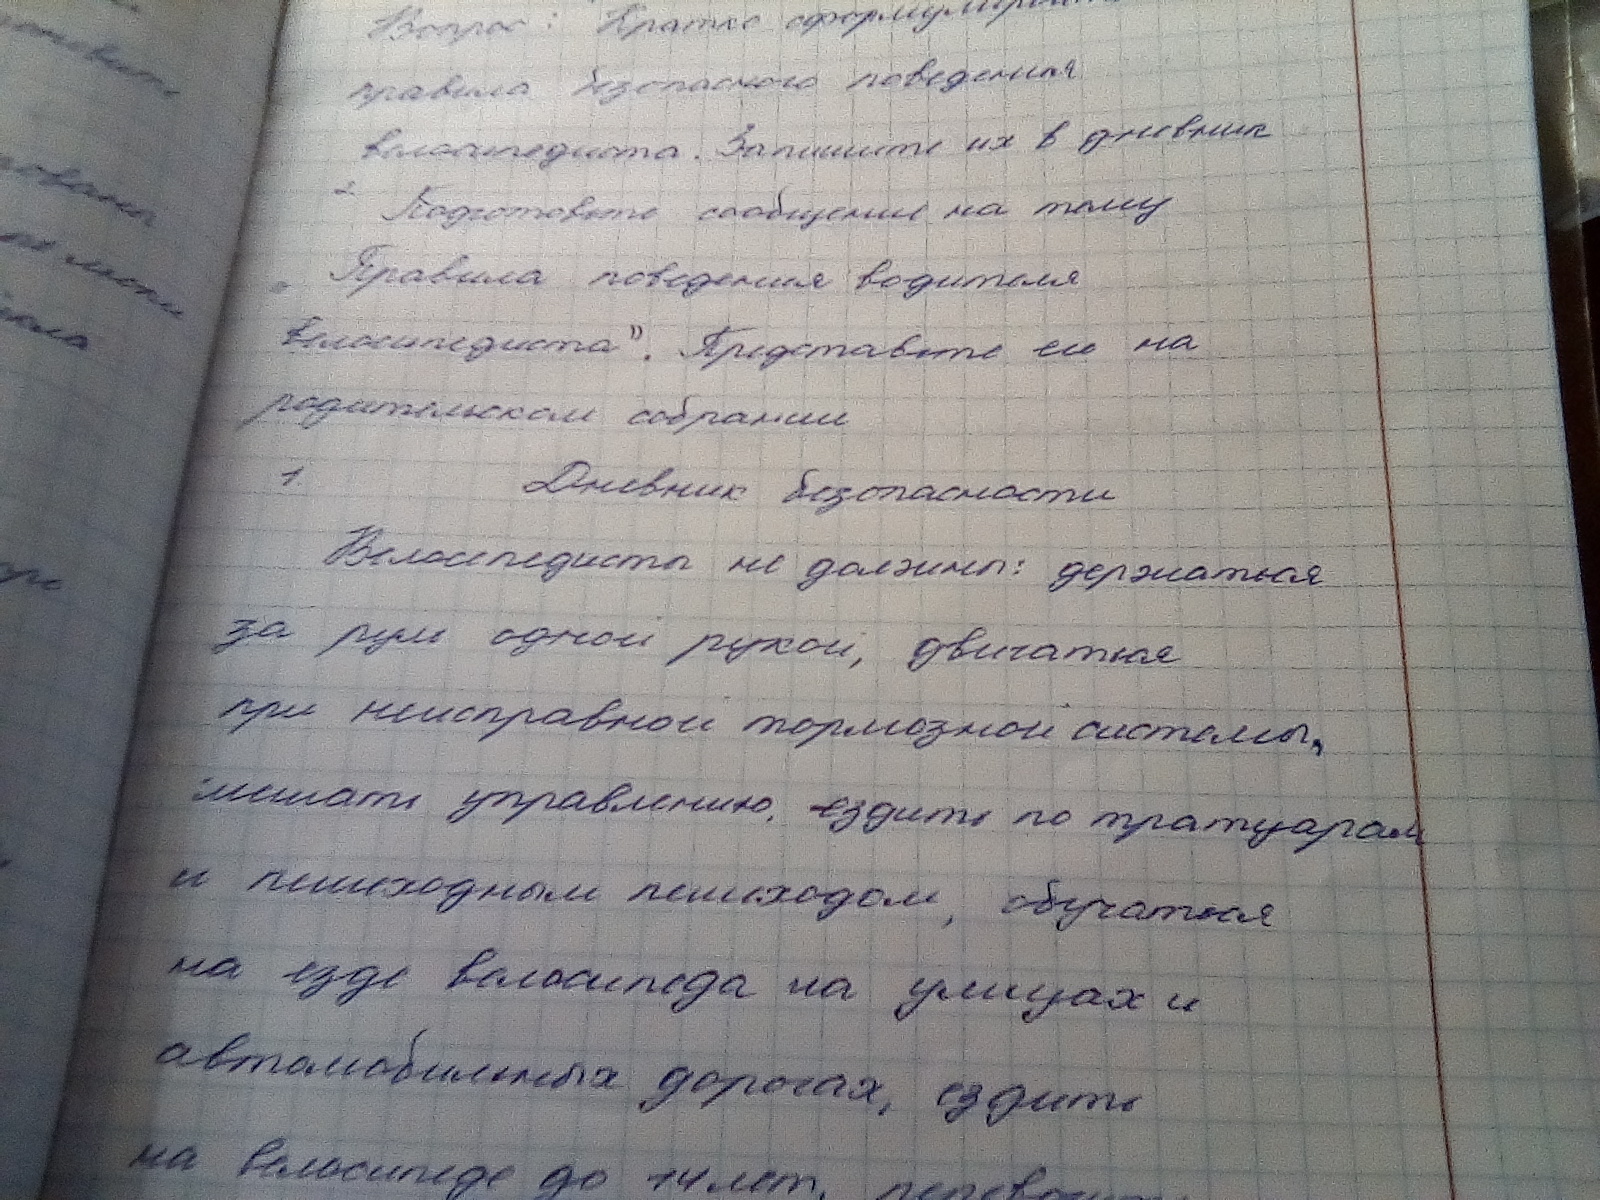 Вопрос: Кратко сформулируйте
правила безопасного поведения
велосипедиста. Запишите их в дневник
2 Подготовьте сообщение на тему
„Правила поведения водителя
велосипедиста". Представьте его на
родительском собрании
1. Дневник безопасности
Велосипедисты не должны: держаться
за руль одной рукой, двигаться
при неисправной тормозной системы,
мешать управлению, ездить по тратуарам
и пешеходным пешеходом, обучаться
на езде велосипеда на улицах и
автомобильных дорогах, ездить
на велосипеде до 14 лет,